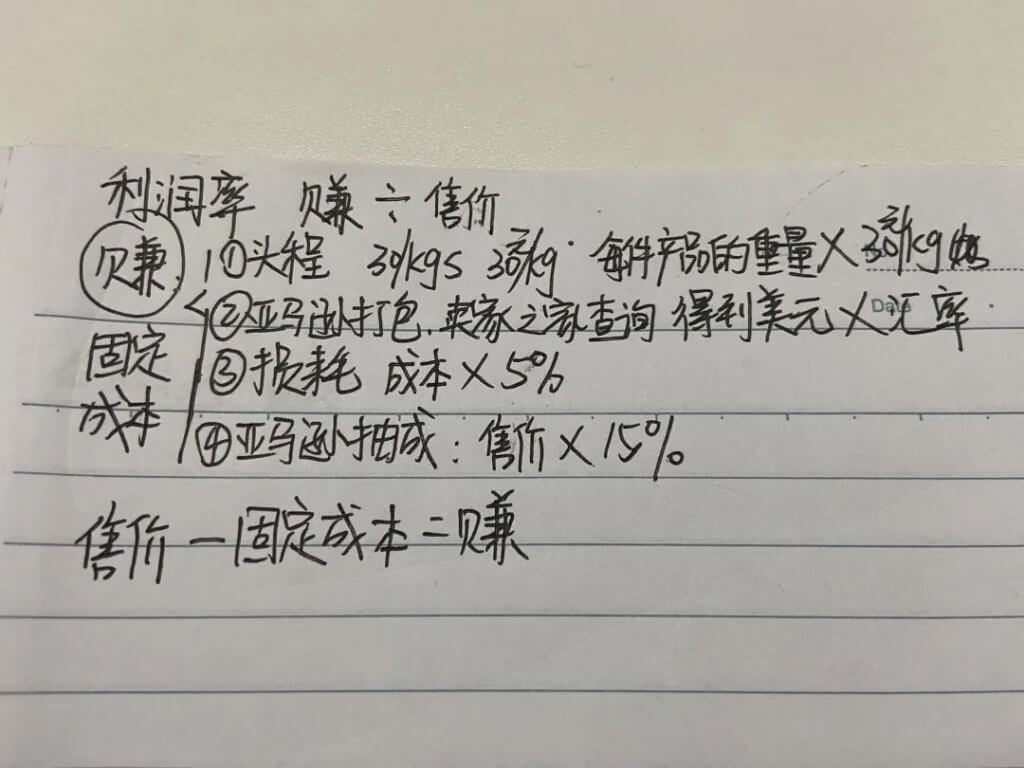 利润率 赚÷售价
赚 ①头程 30/kgs 30元/kg 每件产品的重量×30元/kg
②亚马逊打包.卖家之家查询 得利美元×汇率
固定成本 ③损耗 成本×5%
④亚马逊抽成:售价×15%
售价-固定成本=赚
Date